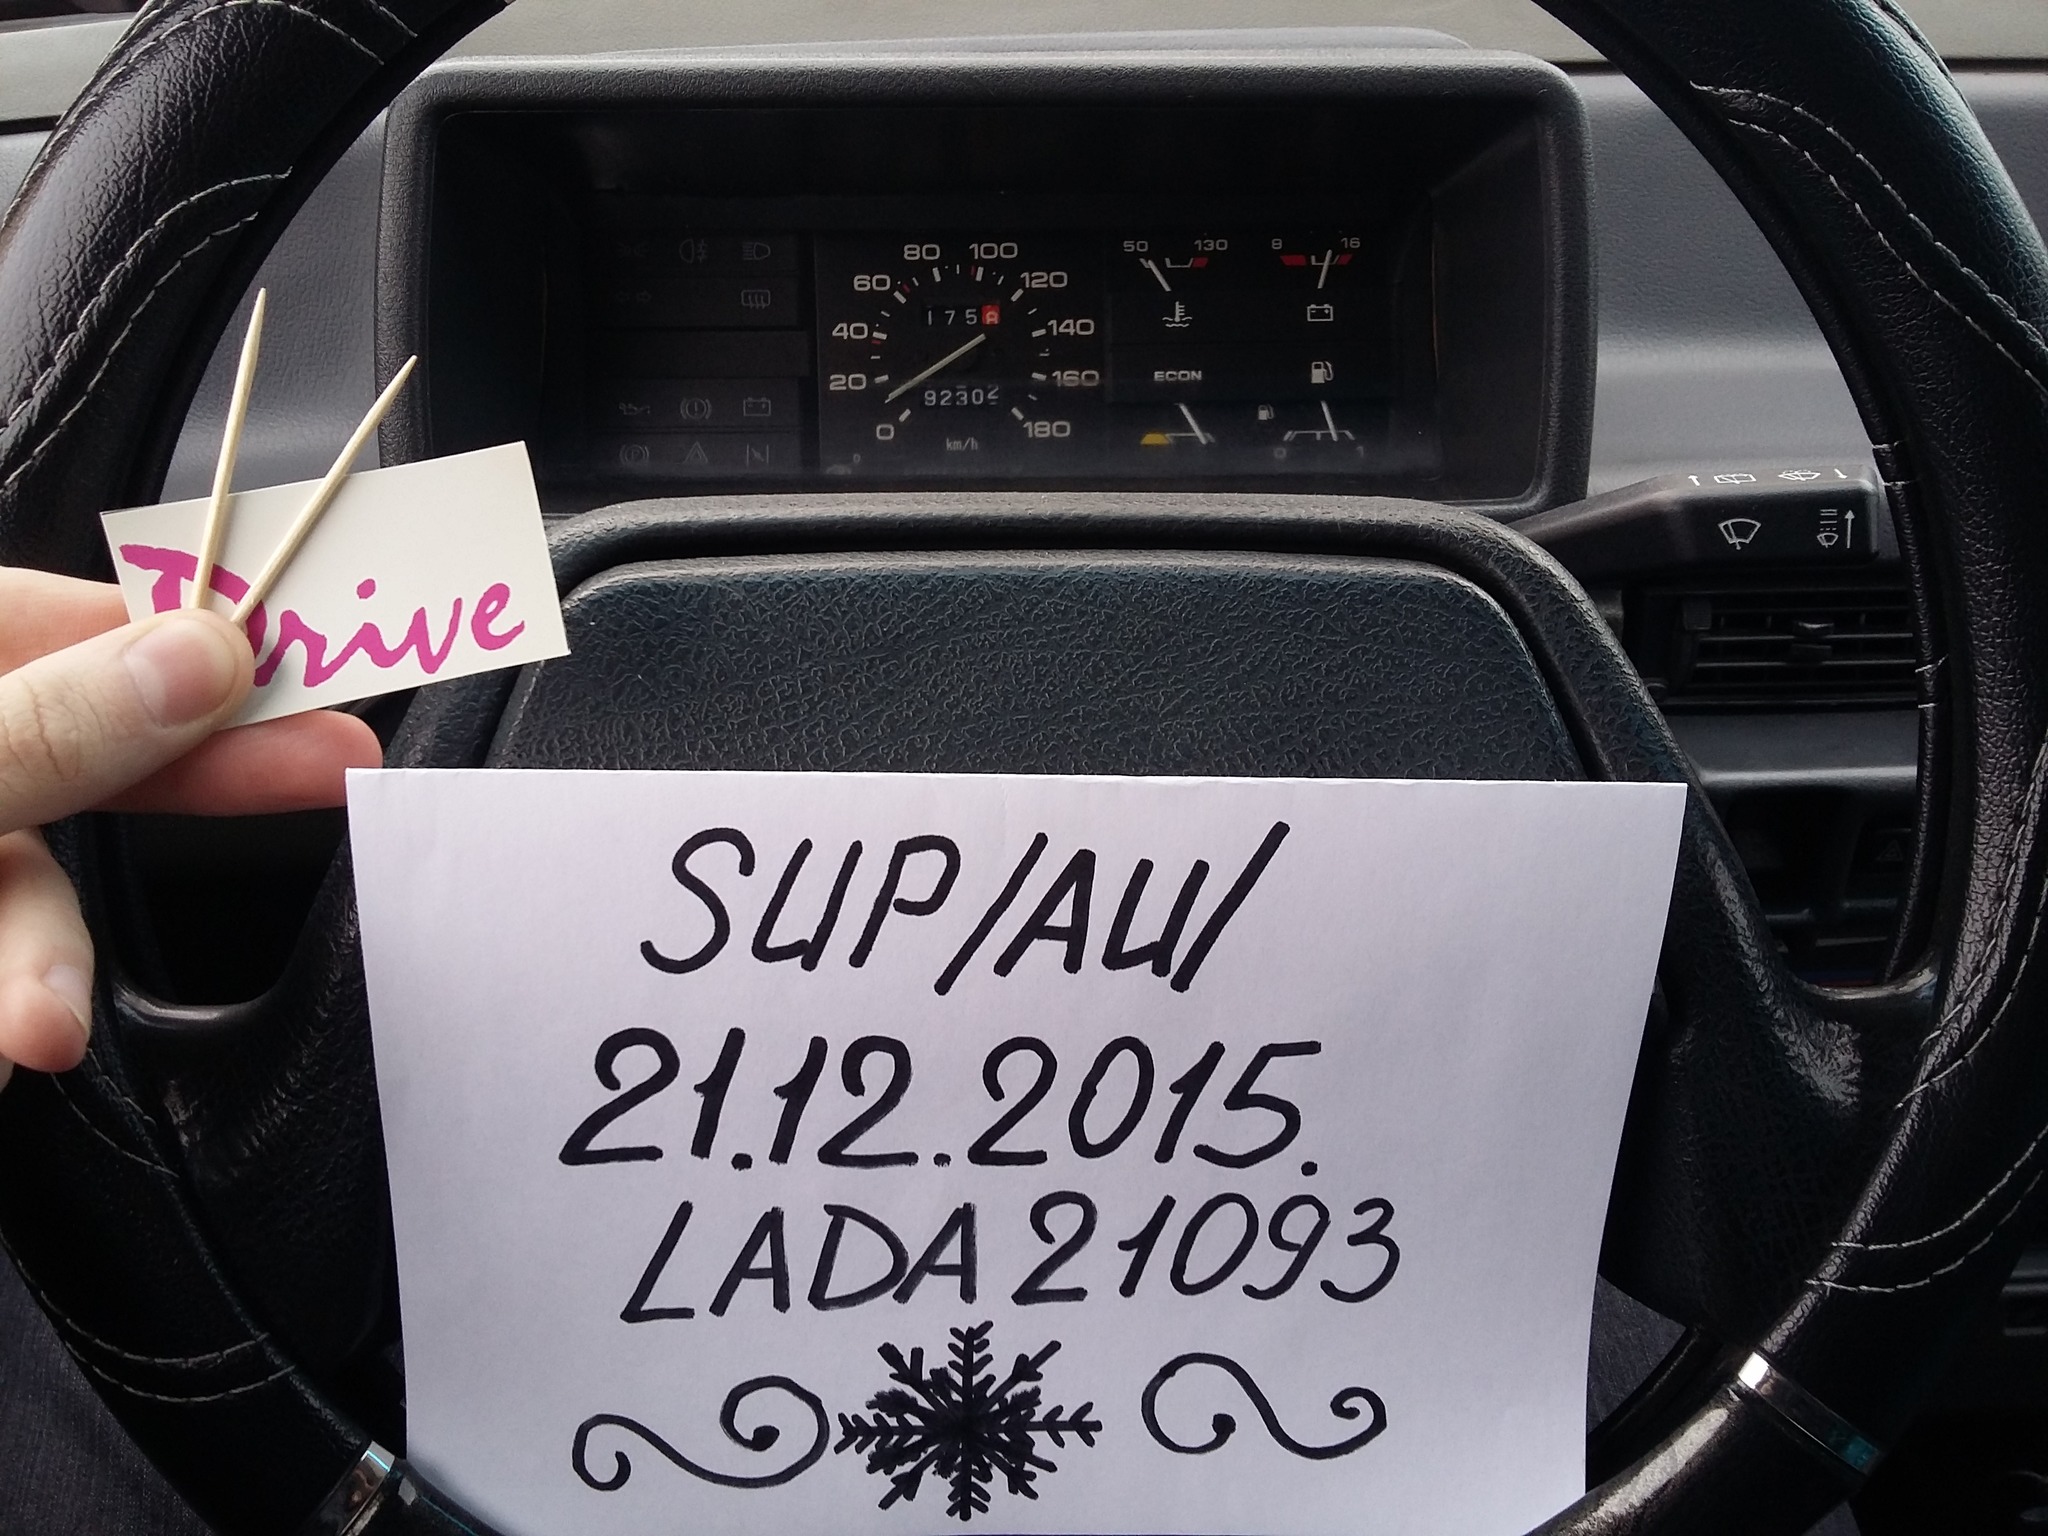 80 100
60 120
40 140
20 160
0 180
175
92302
km/h
50 130
8 16
ECON
0 1
Drive
SUP/AU/
21.12.2015.
LADA 21093